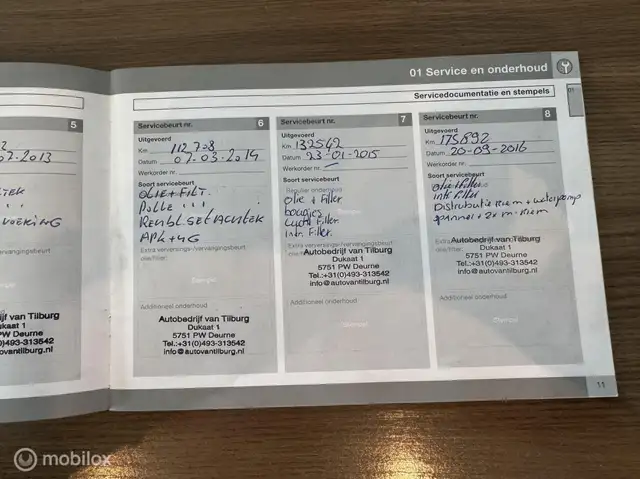 01 Service en onderhoud
Servicedocumentatie en stempels
01
5
07.2013
Autobedrijf van Tilburg
Dukaat 1
PW Deurne
(0)493-313542
ovantilburg.nl
Servicebeurt nr. 6
Uitgevoerd
Km 112 708
Datum 07.03.2014
Werkorder nr.
Soort servicebeurt
OLIE + FILT.
APK + 4G
Extra verversings-/vervangingsbeurt
olie/filter:
Stempel
Additioneel onderhoud
Autobedrijf van Tilburg
Dukaat 1
5751 PW Deurne
Tel.:+31(0)493-313542
info@autovantilburg.nl
Servicebeurt nr. 7
Uitgevoerd
Km 132542
Datum 23-01-2015
Werkorder nr.
Soort servicebeurt
Regulier onderhoud
olie + Filter
bougies
Lucht Filter
intr. Filter
Autobedrijf van Tilburg
Dukaat 1
5751 PW Deurne
Tel.:+31(0)493-313542
info@autovantilburg.nl
Additioneel onderhoud
Stempel
Servicebeurt nr. 8
Uitgevoerd
Km 175892
Datum 20-09-2016
Werkorder nr.
Soort servicebeurt
olie + filter
intr. filter
Distributie Riem + waterpomp
spanner + 2x m-Riem
Autobedrijf van Tilburg
Dukaat 1
5751 PW Deurne
Tel.:+31(0)493-313542
info@autovantilburg.nl
Additioneel onderhoud
Stempel
11
mobilox